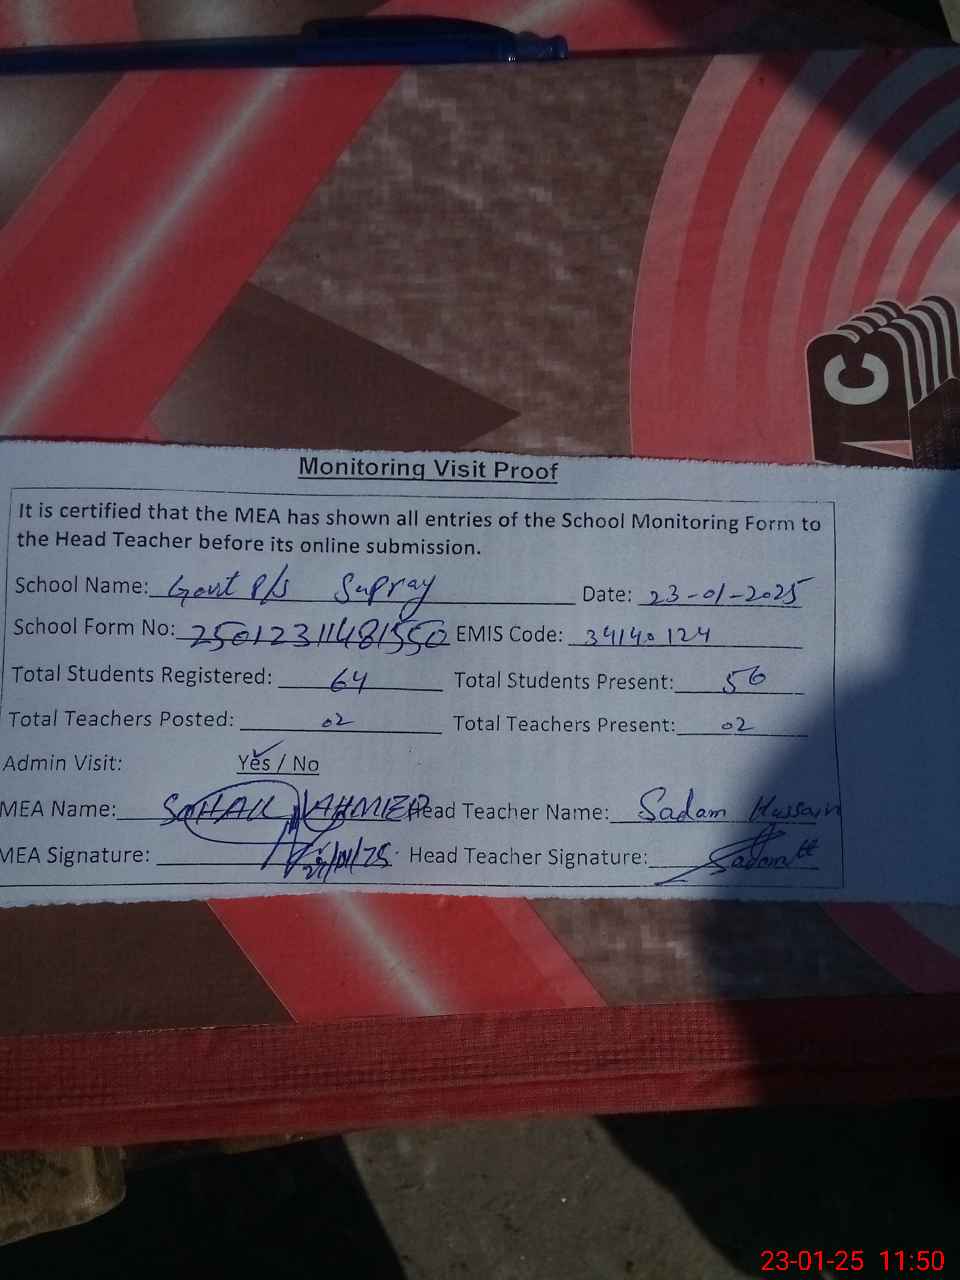 C
A
Monitoring Visit Proof
It is certified that the MEA has shown all entries of the School Monitoring Form to
the Head Teacher before its online submission.
School Name: Govt P/S Supray Date: 23-01-2025
School Form No: 25012311481550 EMIS Code: 34140124
Total Students Registered: 64 Total Students Present: 56
Total Teachers Posted: 02 Total Teachers Present: 02
Admin Visit: Yes / No
MEA Name: SOHAIL AHMED Head Teacher Name: Sadam Hussain
MEA Signature: Head Teacher Signature: Sadam
23-01-25 11:50